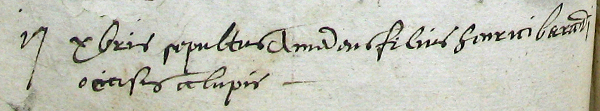 17 xbris sepultus Amedeus filius henrici berardi
occisus a lupis